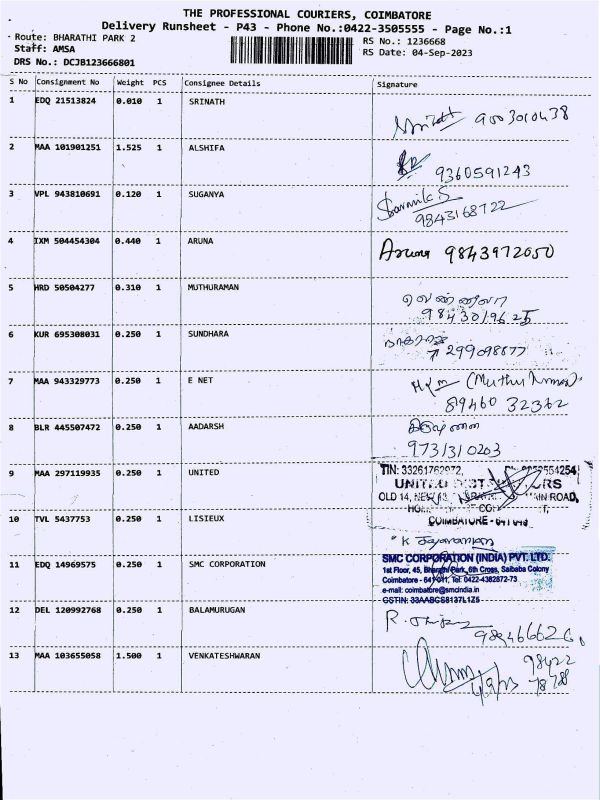 THE PROFESSIONAL COURIERS, COIMBATORE
Delivery Runsheet - P43 - Phone No.:0422-3505555 - Page No.:1
Route: BHARATHI PARK 2 RS No.: 1236668
Staff: AMSA RS Date: 04-Sep-2023
DRS No.: DCJB123666801
S No Consignment No Weight PCS Consignee Details Signature
1 EDQ 21513824 0.010 1 SRINATH 9003010438
2 MAA 101901251 1.525 1 ALSHIFA 9360591243
3 VPL 943810691 0.120 1 SUGANYA Sharmila S
9843168722
4 IXM 504454304 0.440 1 ARUNA Aruna 9843972050
5 HRD 50504277 0.310 1 MUTHURAMAN
98430196 25
6 KUR 695308031 0.250 1 SUNDHARA
7299098877
7 MAA 943329773 0.250 1 E NET
89460 32362
8 BLR 445507472 0.250 1 AADARSH
9731310203
9 MAA 297119935 0.250 1 UNITED TIN: 33261762972,
UNITED
OLD 14, MAIN ROAD,
COIMBATORE
10 TVL 5437753 0.250 1 LISIEUX
K Jayaraman
11 EDQ 14969575 0.250 1 SMC CORPORATION SMC CORPORATION (INDIA) PVT. LTD.
1st Floor, 45, Bharathi Park, 6th Cross, Saibaba Colony
Coimbatore - 641 011, Tel: 0422-4382872-73
e-mail: coimbatore@smcindia.in
GSTIN: 33AABCS8137L1Z5
12 DEL 120992768 0.250 1 BALAMURUGAN
13 MAA 103655058 1.500 1 VENKATESHWARAN 98422
4/9/23